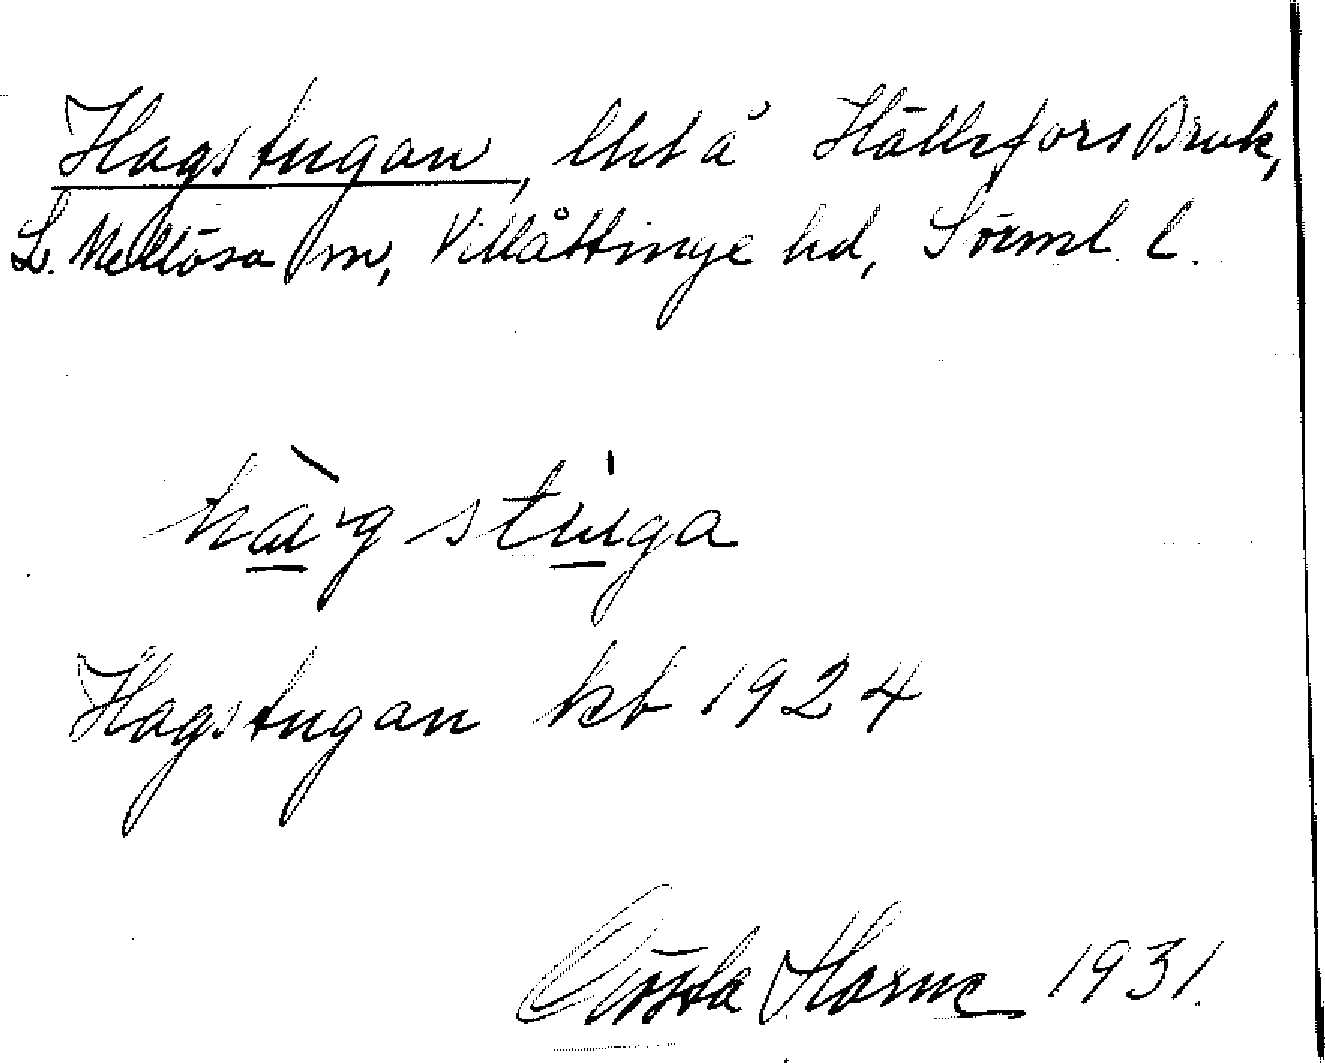 Hagstugan, lht å Hälleforsbruk,
L. Mellösa sn, Villåttinge hd, Sörml. l.
hàgstuga
Hagstugan kb 1924
Gösta Horne 1931.